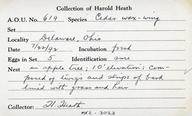 Collection of Harold Heath
A.O.U. No. 619 Species Cedar wax-wing
Set
Locality Delaware, Ohio
Date 7/22/92 Incubation fresh
Eggs in Set 5 Identification sure
Nest in apple tree; 10' elevation; com-
posed of twigs and strips of bark
lined with grass and hair
Collector: H. Heath